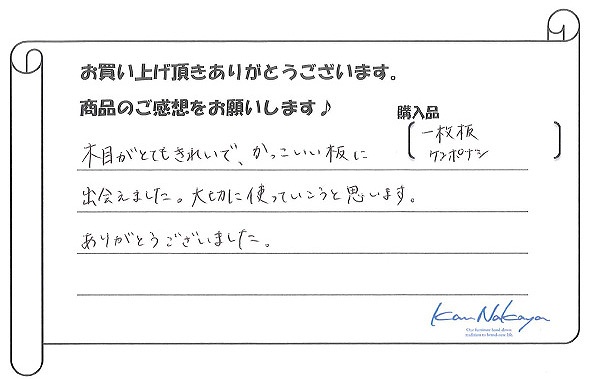 お買い上げ頂きありがとうございます。
商品のご感想をお願いします♪
購入品
一枚板
ケンポナシ
木目がとてもきれいで、かっこいい板に
出会えました。大切に使っていこうと思います。
ありがとうございました。
Kan Nakaya